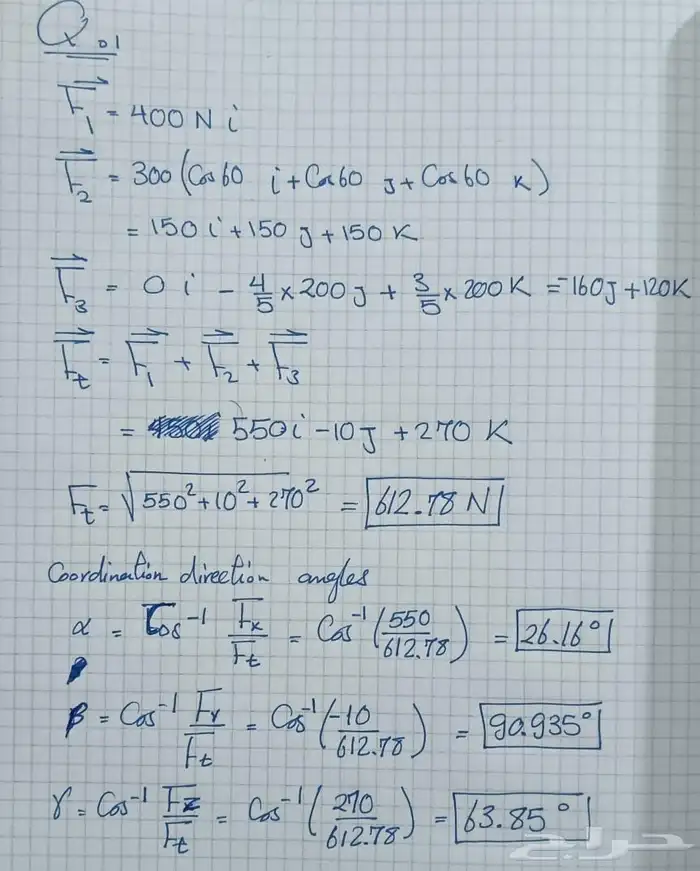 Q.01
F₁ = 400 N i
F₂ = 300 (Cos60 i + Cos60 J + Cos60 K)
= 150 i + 150 J + 150 K
F₃ = 0 i - 4/5 × 200 J + 3/5 × 200 K = -160J + 120K
Ft = F₁ + F₂ + F₃
= 550 i - 10 J + 270 K
Ft = √550² + 10² + 270² = 612.78 N
Coordination direction angles
α = Cos⁻¹ Fx/Ft = Cos⁻¹ (550/612.78) = 26.16°
β = Cos⁻¹ Fy/Ft = Cos⁻¹ (-10/612.78) = 90.935°
γ = Cos⁻¹ Fz/Ft = Cos⁻¹ (270/612.78) = 63.85°
حراج